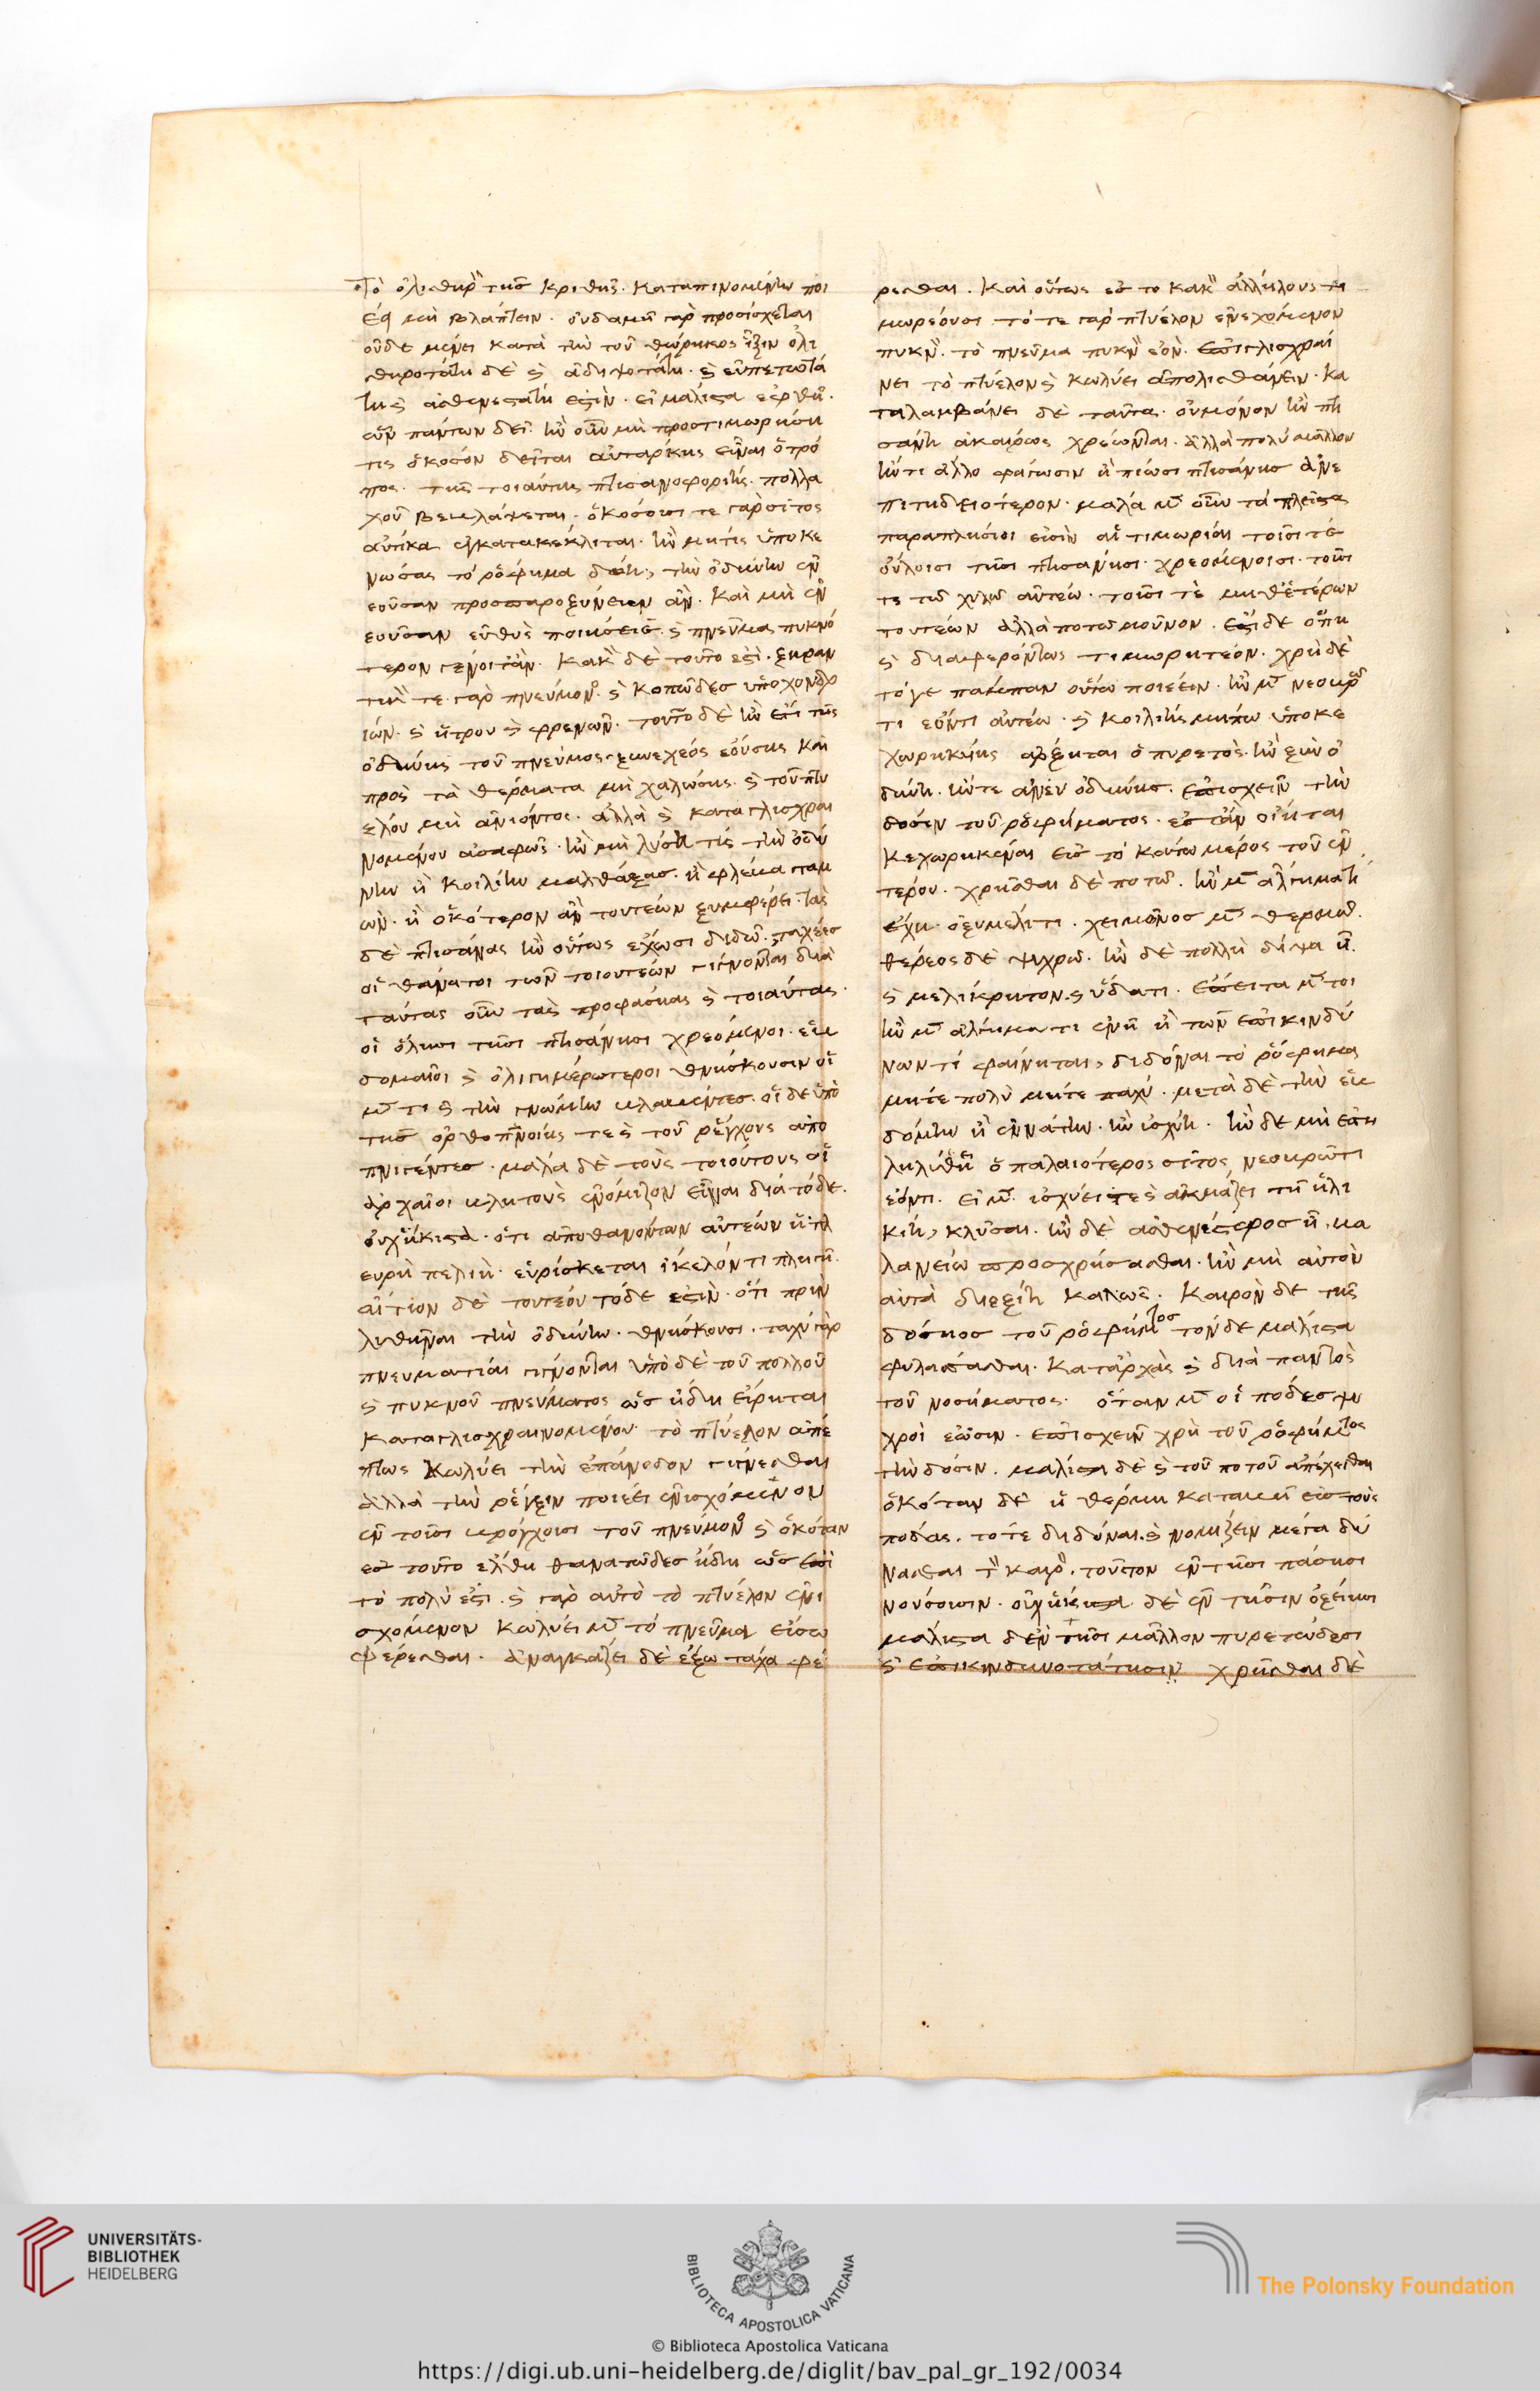 Τὸ ὀλισθηρὸν τῆς κριθῆς. καταπινομένην ποι
έει μὴ βλάπτειν. οὐδαμῇ γὰρ προσίσχεται
οὐδὲ μένει κατὰ τὴν τοῦ θώρηκος ἴξιν ὀλι
σθηροτάτη δὲ καὶ ἀδιψοτάτη. καὶ εὐπεπτοτά
τη καὶ ἀσθενεστάτη ἐστὶν. εἰ μάλιστα ἑφθὴ.
ὧν πάντων δεῖ. ἢν οὖν μὴ προστιμωρήσῃ
τις ὁκόσον δεῖται αὐτάρκης εἶναι ὁ τρό
πος. τῆς τοιαύτης πτισανοῤῥοφίης. πολλα
χοῦ βεβλάψεται. ὁκόσοισι τε γὰρ σῖτος
αὐτίκα ἐγκατακέκλιται. ἢν μή τις ὑποκε
νώσας τὸ ῥόφημα δώῃ, τὴν ὀδύνην ἐν
εοῦσαν προσπαροξύνειεν ἂν. καὶ μὴ ἐν
εοῦσαν εὐθὺς ποιήσειε. καὶ πνεῦμα πυκνό
τερον γένοιτ' ἂν. κακὸν δὲ τοῦτο ἐστὶ. ξηραν
τικὸν τε γὰρ πνεύμονος. καὶ κοπῶδες ὑποχονδρ
ίων. καὶ ἤτρου καὶ φρενῶν. τοῦτο δὲ ἢν ἔτι τῆς
ὀδύνης τοῦ πνεύμος ξυνεχέος ἐούσης καὶ
πρὸς τὰ θέρματα μὴ χαλώσης. καὶ τοῦ πτυ
έλου μὴ ἀνιόντος. ἀλλὰ καὶ καταγλισχραι
νομένου ἀσαφῶς. ἢν μὴ λύσῃ τις τὴν ὀδύ
νην ἢ κοιλίην μαλθάξας. ἢ φλέβα ταμ
ὼν. ἢ ὁκότερον ἂν τουτέων ξυμφέρει. τὰς
δὲ πτισάνας ἢν οὕτως ἔχωσι διδῷ. ταχέες
οἱ θάνατοι τῶν τοιουτέων γίγνονται διὰ
ταύτας οὖν τὰς προφάσιας καὶ τοιαύτας.
οἱ ὅλῃσι τῇσι πτισάνῃσι χρεόμενοι. ἑβ
δομαῖοι καὶ ὀλιγημερώτεροι θνήσκουσιν οἱ
μέν τι καὶ τὴν γνώμην βλαβέντες. οἱ δὲ ὑπὸ
τῆς ὀρθοπνοίης τε καὶ τοῦ ῥέγχους ἀπο
πνιγέντες. μάλα δὲ τοὺς τοιούτους οἱ
ἀρχαῖοι βλητοὺς ἐνόμιζον εἶναι διὰ τόδε.
οὐχ ἥκιστα. ὅτι ἀποθανόντων αὐτέων ἡ πλ
ευρὴ πελιὴ. εὑρίσκεται ἰκελόν τι πληγῇ.
αἴτιον δὲ τουτέου τόδε ἐστὶν. ὅτι πρὶν
λυθῆναι τὴν ὀδύνην. θνήσκουσι. ταχὺ γὰρ
πνευματίαι γίγνονται ὑπὸ δὲ τοῦ πολλοῦ
καὶ πυκνοῦ πνεύματος ὡς ἤδη εἴρηται
καταγλισχραινομένον τὸ πτύελον ἀπέ
πτως κωλύει τὴν ἐπάνοδον γίγνεσθαι
ἀλλὰ τὴν ῥέγξιν ποιέει ἐνισχόμενον
ἐν τοῖσι βρόγχοισι τοῦ πνεύμονος καὶ ὁκόταν
ἐς τοῦτο ἔλθῃ θανατῶδες ἤδη ὡς ἐπὶ
τὸ πολὺ ἐστὶ. καὶ γὰρ αὐτὸ τὸ πτύελον ἐνι
σχόμενον κωλύει μὲν τὸ πνεῦμα εἴσω
φέρεσθαι. ἀναγκάζει δὲ ἔξω τάχα φέ
ρεσθαι. καὶ οὕτως ἐς τὸ κακὸν ἀλλήλους τι
μωρέουσι τό τε γὰρ πτύελον ἐνεχόμενον
πυκνὸν. τὸ πνεῦμα πυκνὸν ἐὸν. ἐπιγλισχραί
νει τὸ πτύελον καὶ κωλύει ἀπολισθάνειν. κα
ταλαμβάνει δὲ ταῦτα. οὐ μόνον ἢν πτι
σάνῃ ἀκαίρως χρέωνται. ἀλλὰ πολὺ μᾶλλον
ἤν τι ἄλλο φάγωσιν ἢ πίωσι πτισάνης ἀνε
πιτηδειότερον. μάλα μὲν οὖν τὰ πλεῖστα
παραπλήσιοι εἰσὶν αἱ τιμωρίαι τοῖσί τε
οὔλοισι τῇσι πτισάνῃσι. χρεομένοισι. τοῖσι
τε τῷ χυλῷ αὐτέῳ. τοῖσι τὲ μηθετέρων
τουτέων ἀλλὰ ποτῷ μοῦνον. ἔστι δὲ ὅπῃ
καὶ διαφερόντως τιμωρητέον. χρὴ δὲ
τό γε πάμπαν οὕτω ποιέειν. ἢν μὲν νεοβρῶ
τι ἐόντι αὐτέῳ. καὶ κοιλίης μήπω ὑποκε
χωρηκυίης ἄρξηται ὁ πυρετὸς. ἢν ξὺν ὀ
δύνῃ. ἤν τε ἄνευ ὀδύνης. ἐπισχεῖν τὴν
δόσιν τοῦ ῥοφήματος. ἔστ' ἂν οἴηται
κεχωρηκέναι εἰς τὸ κάτω μέρος τοῦ ἐν
τέρου. χρῆσθαι δὲ ποτῷ. ἢν μὲν ἄλγημά τι
ἔχῃ. ὀξυμέλιτι. χειμῶνος μὲν θερμῷ.
θέρεος δὲ ψυχρῷ. ἢν δὲ πολλὴ δίψα ᾖ.
καὶ μελίκρητον καὶ ὕδατι. ἔπειτα μέν τοι
ἢν μὲν ἄλγημα τι ἐνῇ ἢ τῶν ἐπικινδύ
νων τί φαίνηται, διδόναι τὸ ῥόφημα
μήτε πολὺ μήτε παχὺ. μετὰ δὲ τὴν ἑβ
δόμην ἢ ἐννάτην. ἢν ἰσχύῃ. ἢν δὲ μὴ ὑπε
ληλύθῃ ὁ παλαιότερος σῖτος νεοβρῶτι
ἐόντι. εἰ μὲν ἰσχύει τε καὶ ἀκμάζει τῇ ἡλι
κίῃ, κλύσαι. ἢν δὲ ἀσθενέστερος ᾖ, βα
λανείῳ προσχρήσασθαι. ἢν μὴ αὐτὸν
αὐτὰ διεξίῃ καλῶς. καιρὸν δὲ τῆς
δόσιος τοῦ ῥοφήματος τόνδε μάλιστα
φυλάσσεσθαι. κατ' ἀρχὰς καὶ διὰ παντὸς
τοῦ νοσήματος. ὅταν μὲν οἱ πόδες ψυ
χροὶ ἔωσιν. ἐπισχεῖν χρὴ τοῦ ῥοφήματος
τὴν δόσιν. μάλιστα δὲ καὶ τοῦ ποτοῦ ἀπέχεσθαι
ὁκόταν δὲ ἡ θέρμη καταβῇ εἰς τοὺς
πόδας. τότε διδόναι. καὶ νομίζειν μέγα δύ
νασθαι τὸν καιρὸν. τοῦτον ἐν τῇσι πάσῃσι
νούσοισιν. οὐχ ἥκιστα δὲ ἐν τῇσιν ὀξείῃσι
μάλιστα δ' ἐν τῇσι μᾶλλον πυρετώδεσι
καὶ ἐπικινδυνοτάτῃσιν χρῆσθαι δὲ
UNIVERSITÄTS-
BIBLIOTHEK
HEIDELBERG
BIBLIOTECA APOSTOLICA VATICANA
The Polonsky Foundation
© Biblioteca Apostolica Vaticana
https://digi.ub.uni-heidelberg.de/diglit/bav_pal_gr_192/0034